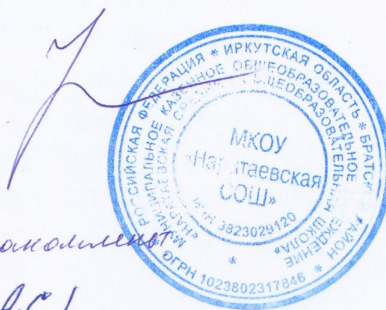 РОССИЙСКАЯ ФЕДЕРАЦИЯ * ИРКУТСКАЯ ОБЛАСТЬ * БРАТСКИЙ РАЙОН
МУНИЦИПАЛЬНОЕ КАЗЕННОЕ ОБЩЕОБРАЗОВАТЕЛЬНОЕ УЧРЕЖДЕНИЕ
СРЕДНЯЯ ОБЩЕОБРАЗОВАТЕЛЬНАЯ ШКОЛА»
МКОУ
«Наратаевская
СОШ»
ИНН 3823029120
*
* ОГРН 1023802317846 *